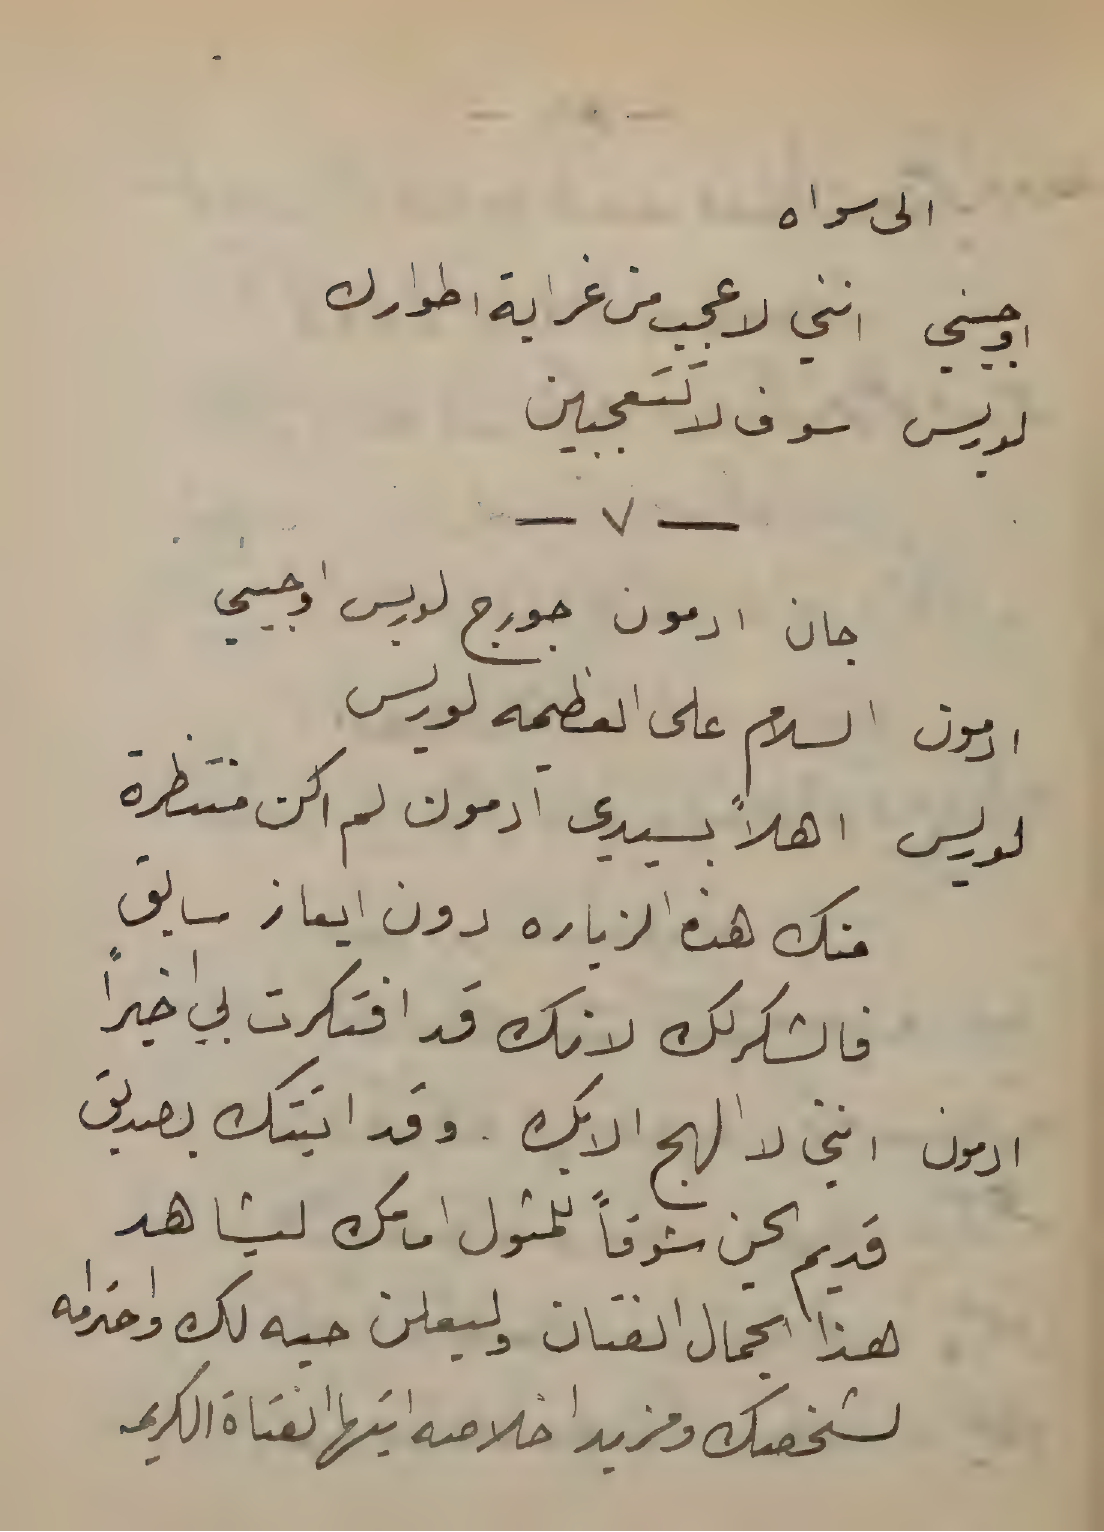 الى سواه
اوجيني انني لاعجب من غرابة اطوارك
لويس سوف لا تتعجبين
— ٧ —
جان ادمون جورج لويس اوجيني
ادمون السلام على العظيمه لويس
لويس اهلاً بسيدي ادمون لم اكن منتظرة
منك هذه الزياره دون ايعاز سابق
فالشكر لك لانك قد افتكرت بي اخيراً
ادمون انني لا الهج الا بك . وقد اتيتك بصديق
قديم يحن شوقاً للمثول امامك ليشاهد
هذا الجمال الفتان وليعلن حبه لك واحترامه
لشخصك ومزيد اخلاصه ايتها الفتاة الكريمه